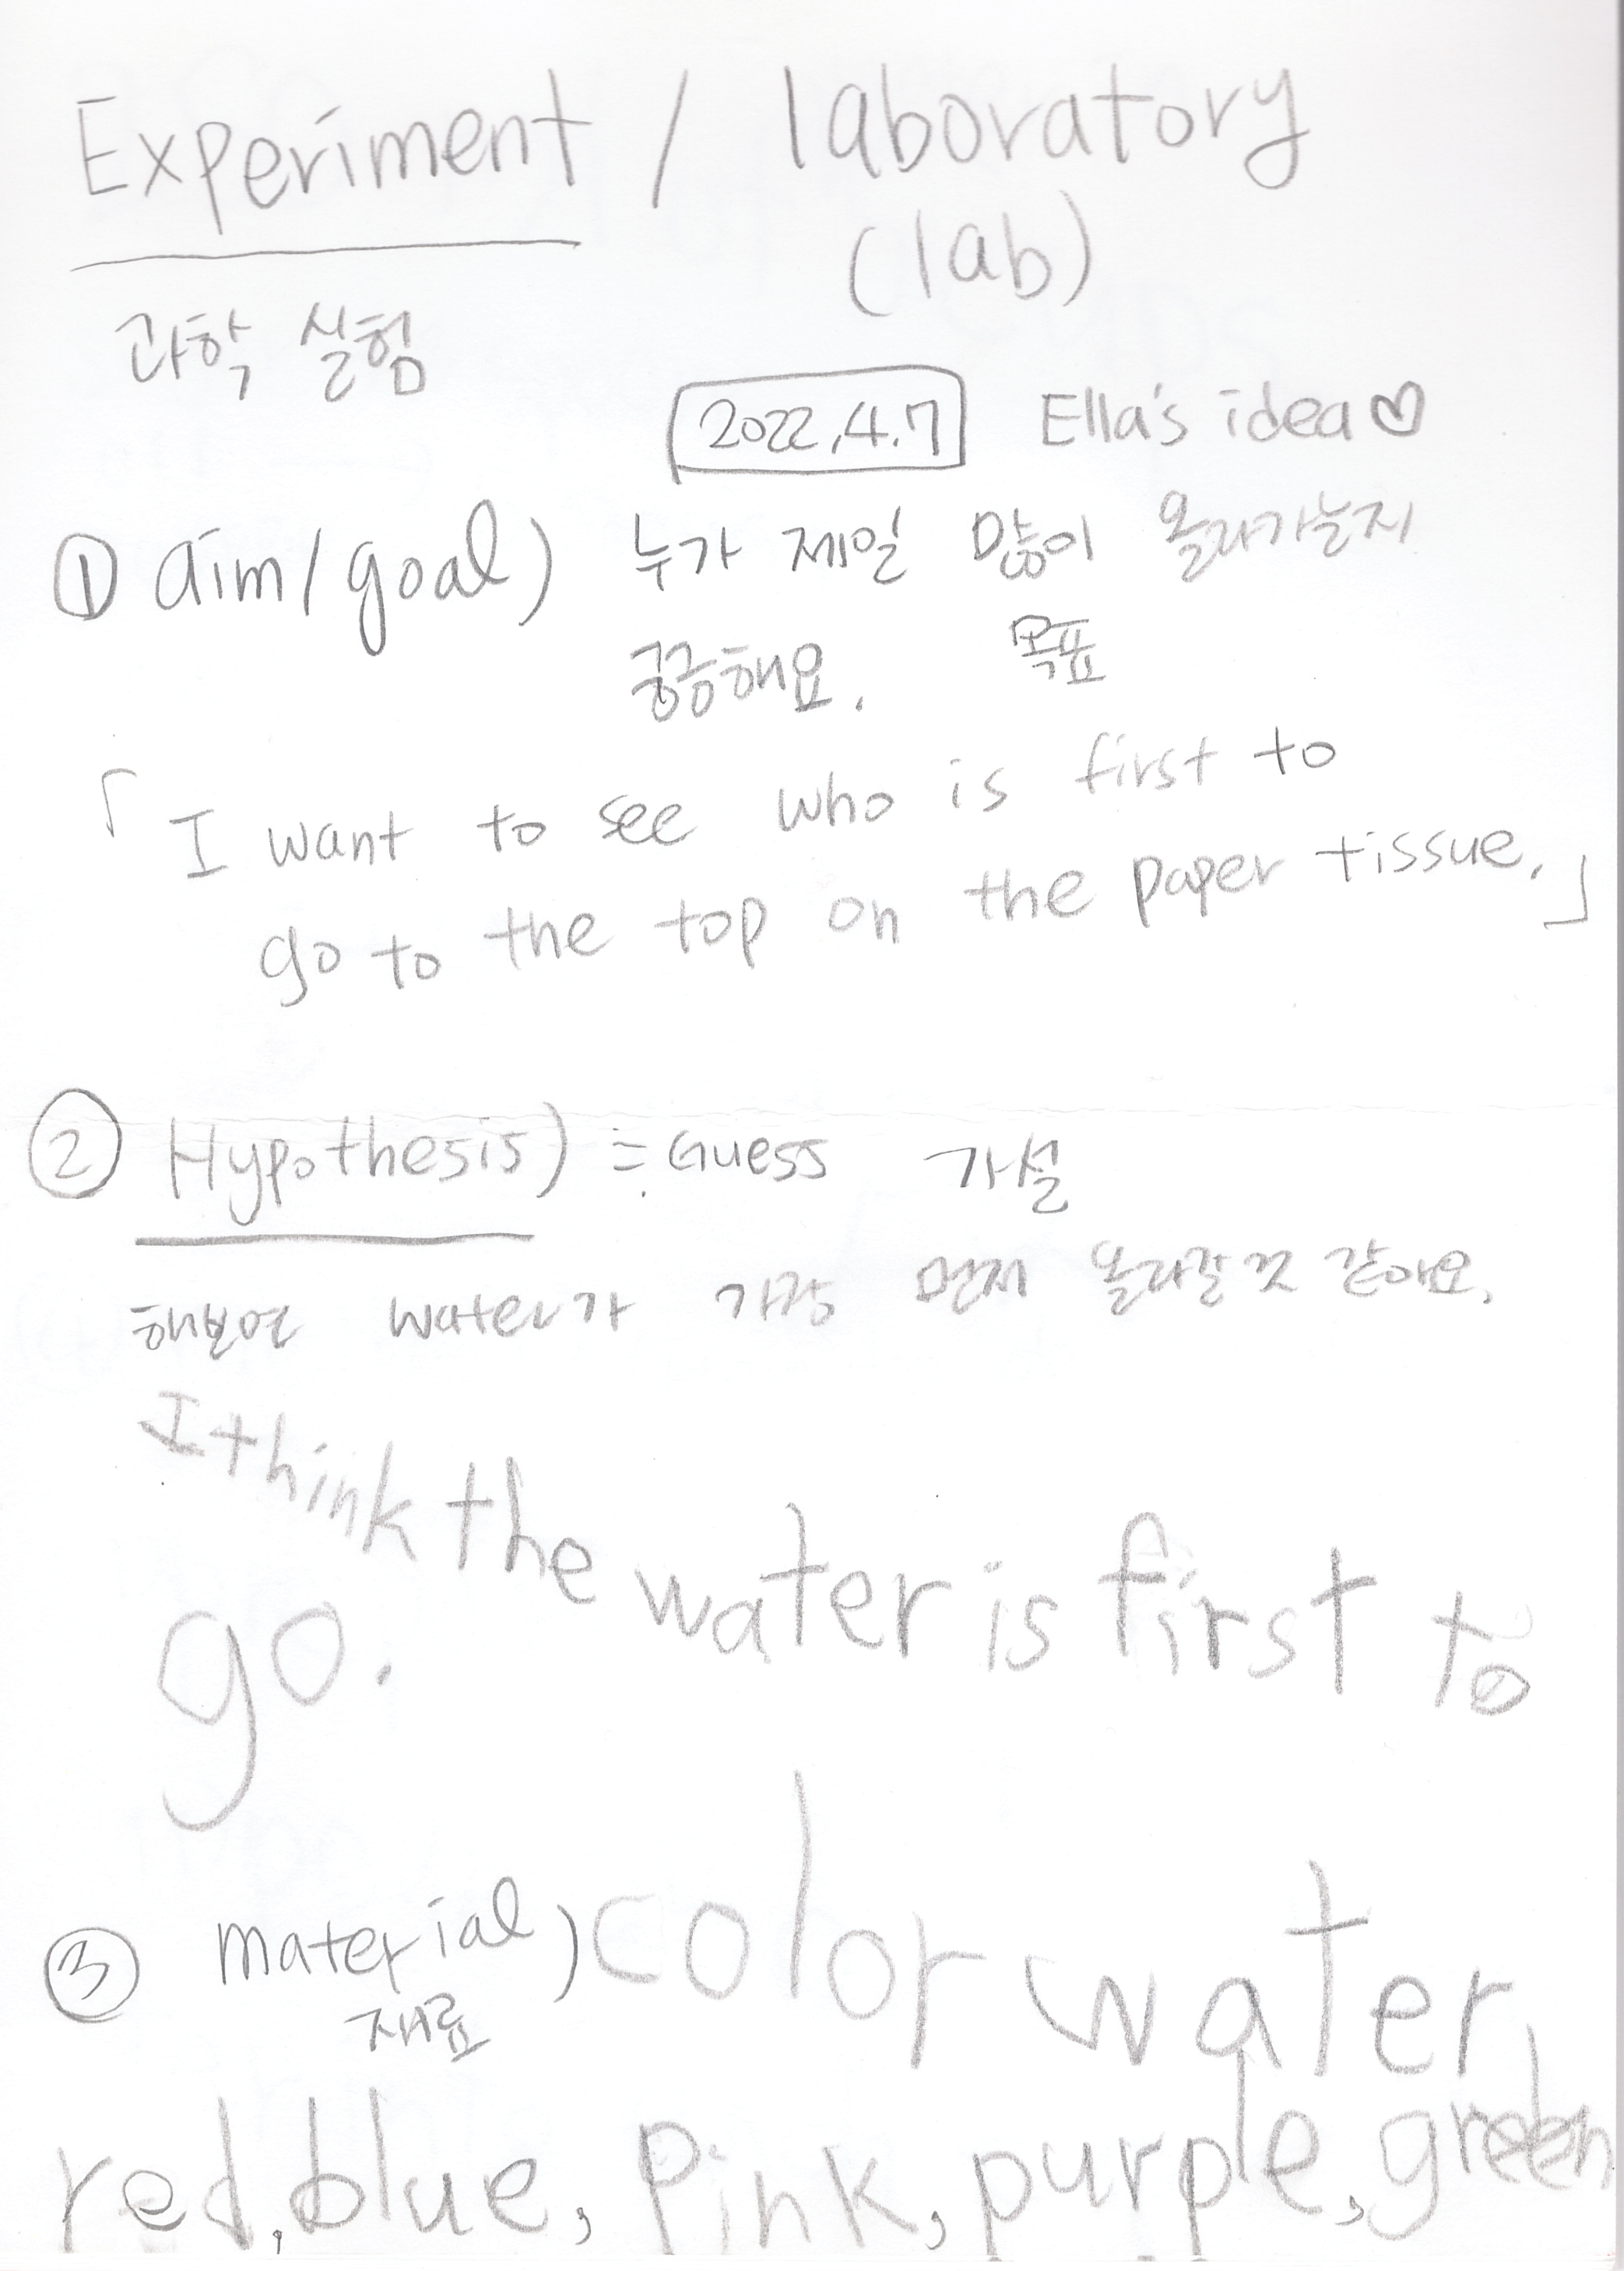 Experiment / laboratory
(lab)
과학 실험
2022.4.7 Ella's idea♡
① aim/goal) 누가 제일 많이 올라가는지
궁금해요. 목표
「I want to see who is first to
go to the top on the paper tissue.」
② Hypothesis) ≒ Guess 가설
해보면 water가 가장 먼저 올라갈 것 같아요.
I think the water is first to
go.
③ material) color water,
재료
red, blue, Pink, purple, green